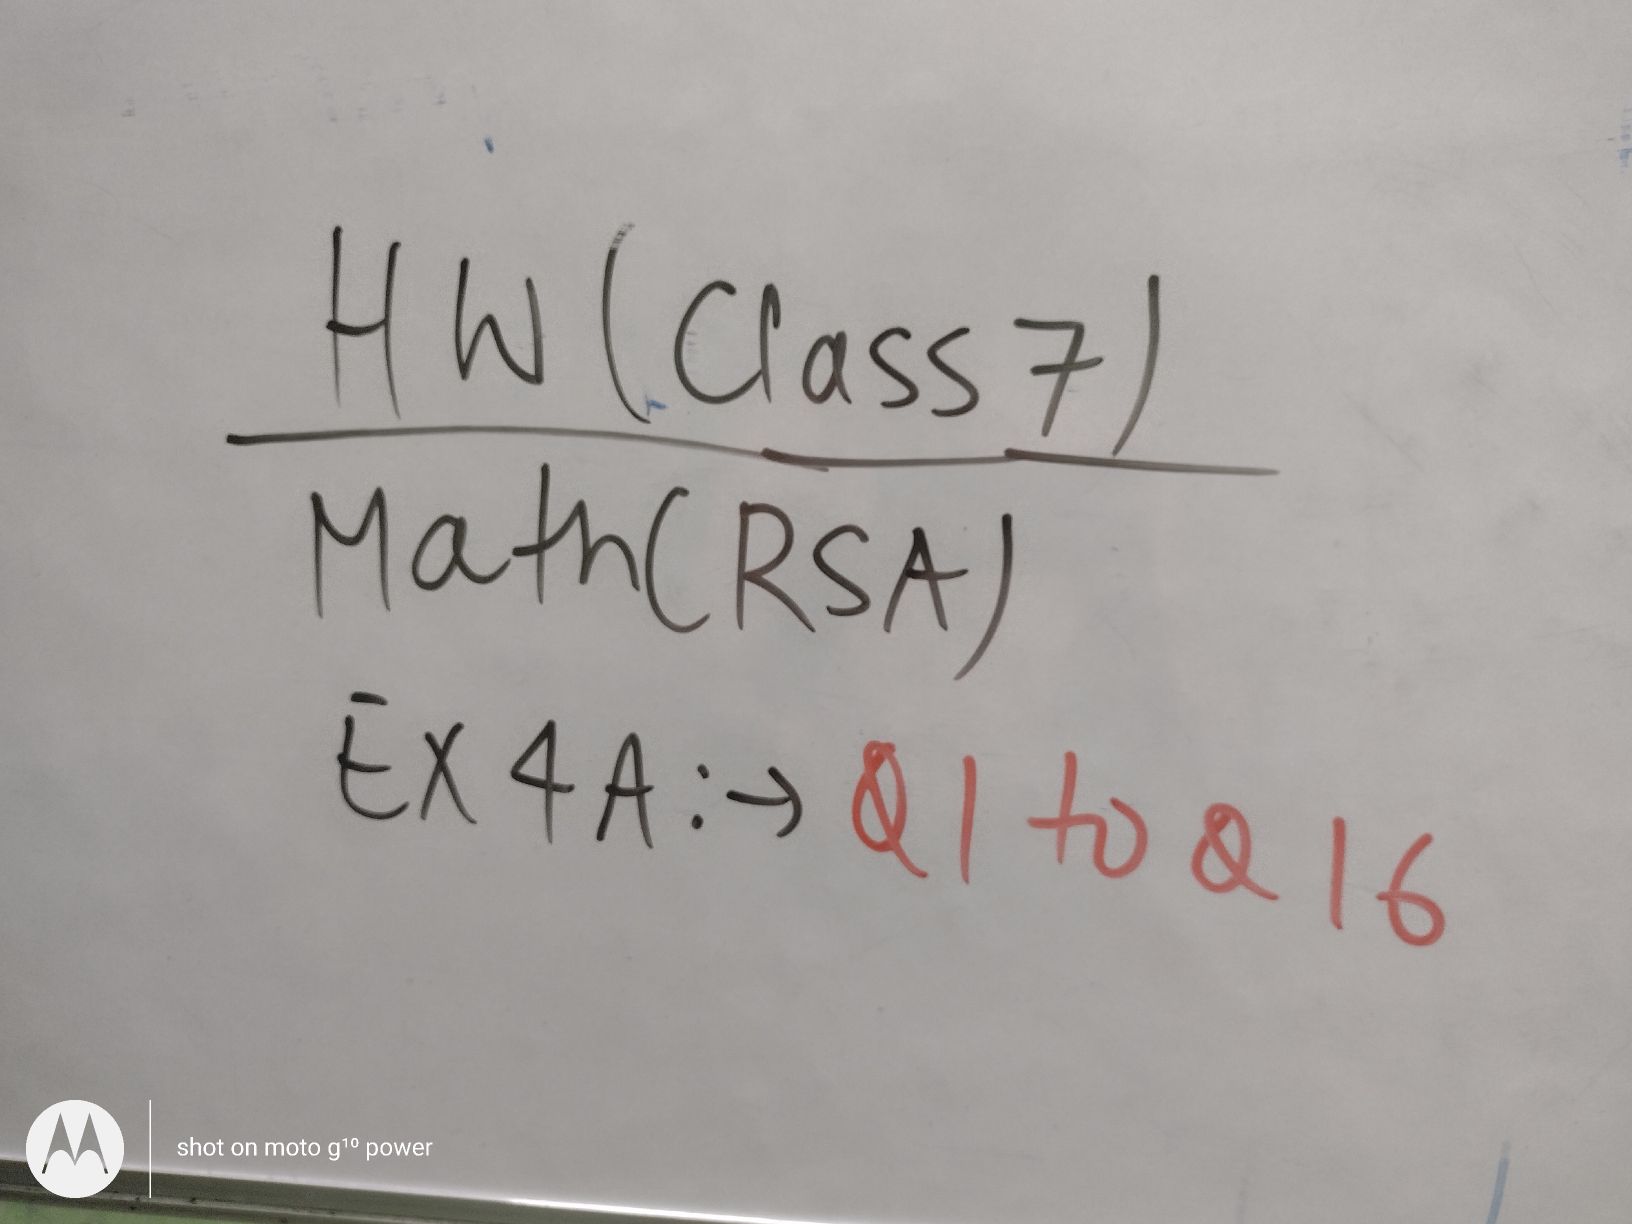 HW (Class 7)
Math (RSA)
Ex 4A :→ Q1 to Q16
shot on moto g¹⁰ power